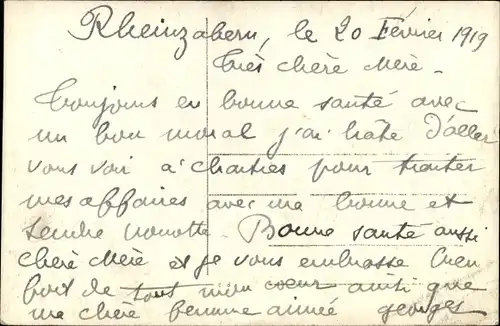 Rheinzabern, le 20 Février 1919
Très chère Mère -
Toujours en bonne santé avec
un bon moral j'ai hâte d'aller
vous voir à Chartres pour traiter
mes affaires avec ma bonne et
tendre nonotte. Bonne santé aussi
chère Mère et je vous embrasse bien
fort de tout mon cœur ainsi que
ma chère femme aimée georges